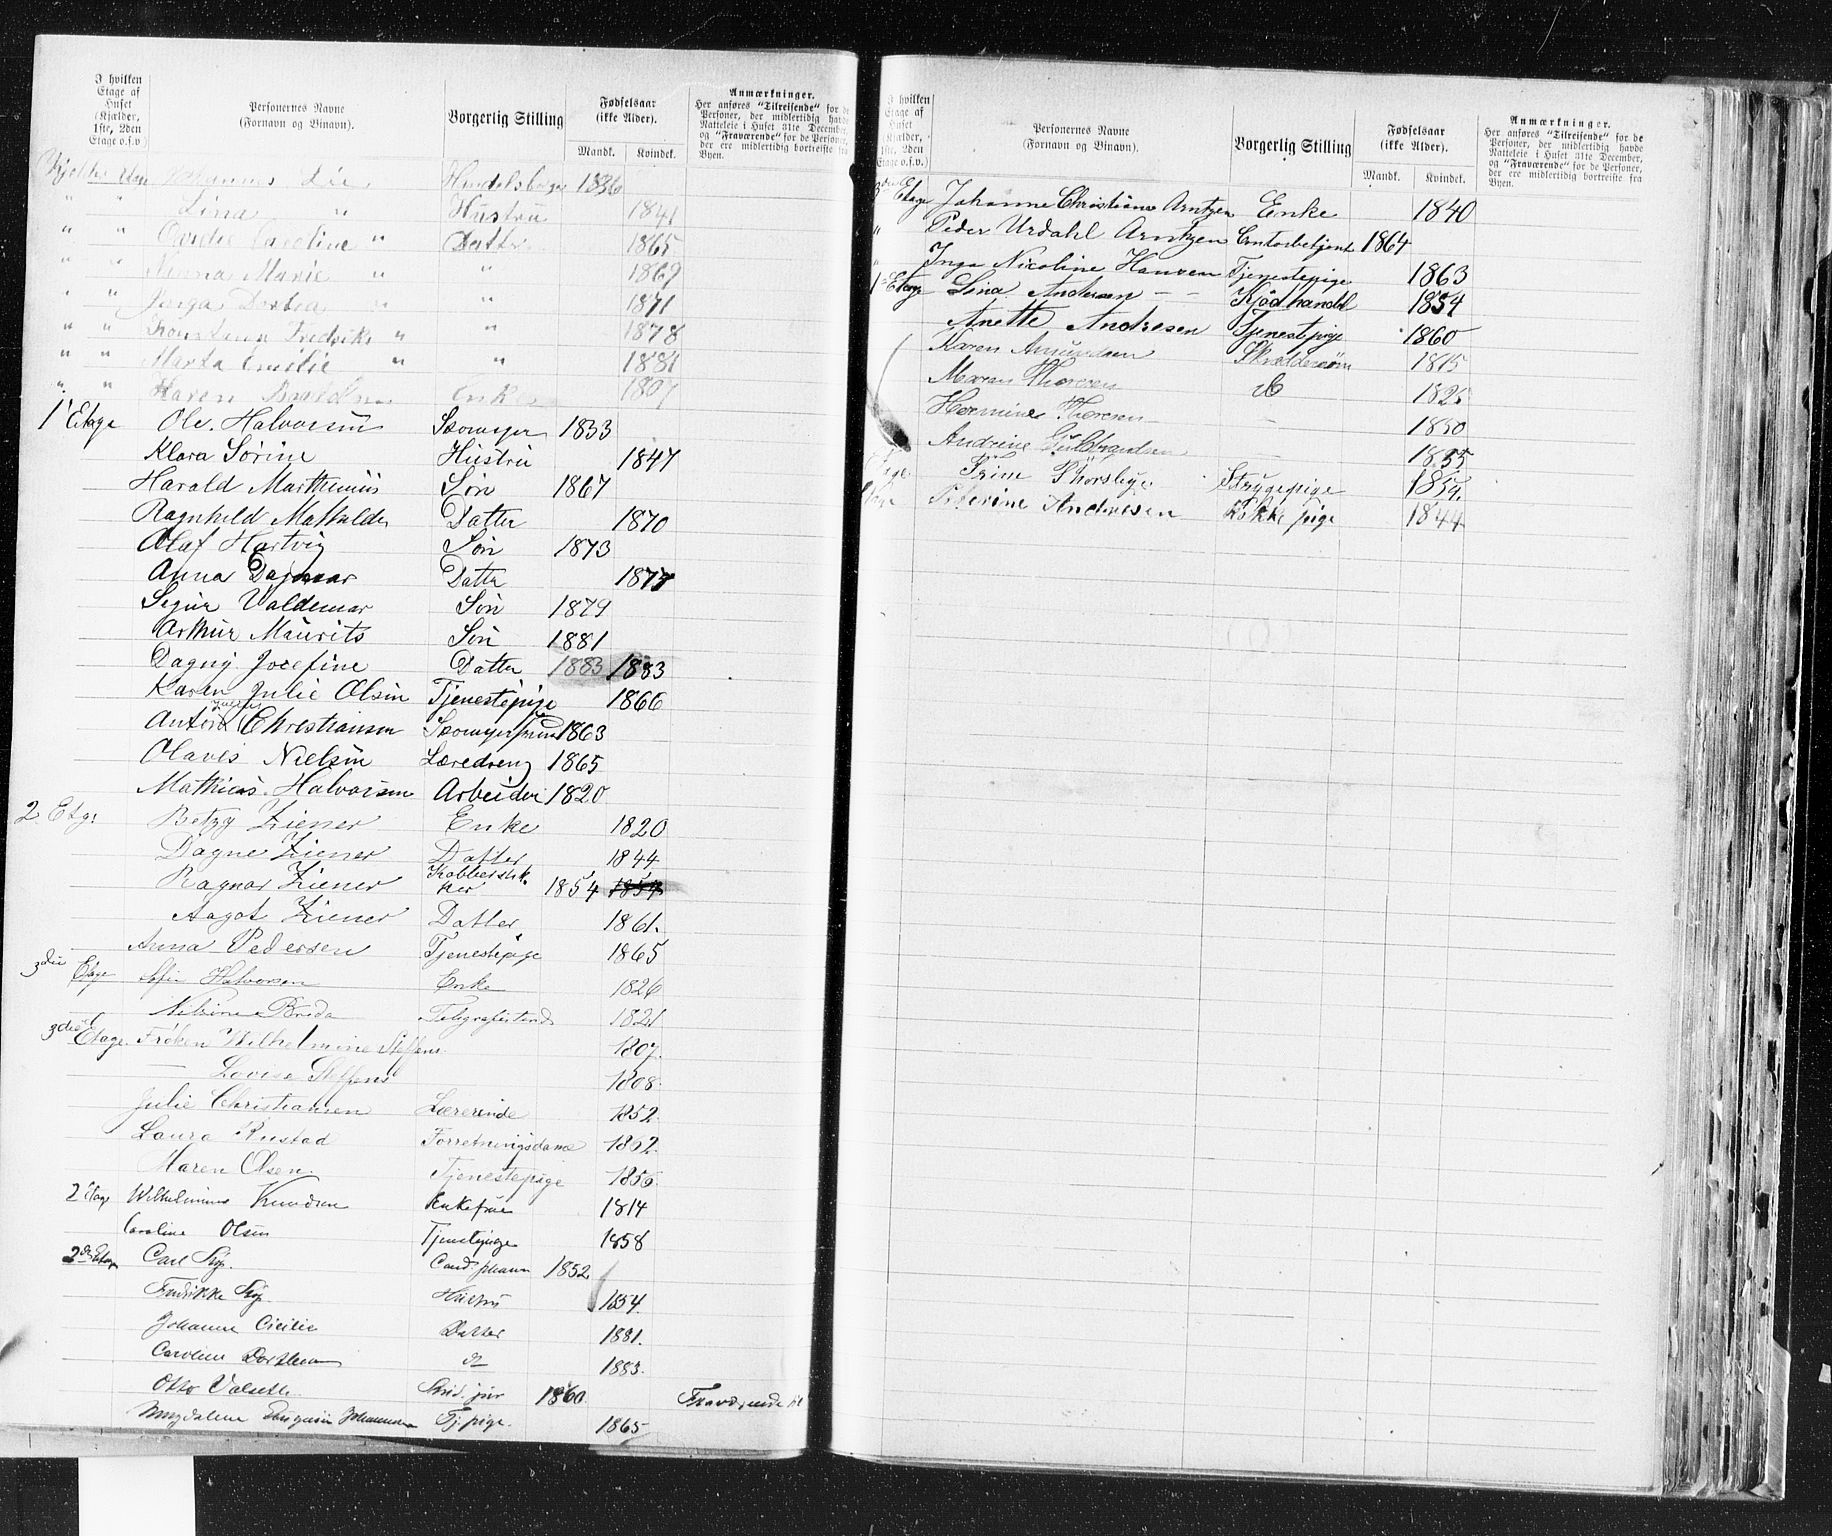 I hvilken Etage af Huset (Kjælder, 1ste, 2den Etage o.s.v)
Personernes Navne (Fornavn og Binavn).
Borgerlig Stilling
Fødselsaar (ikke Alder).
Mandk. Kvindek.
Anmærkninger.
Her anføres "Tilreisende" for de Personer, der midlertidig havde Natteleie i Huset 31te December, og "Fraværende" for de Personer, der ere midlertidig bortreiste fra Byen.
Lie 1836
" " Lina " Hustru 1841
" " Caroline " Datter 1865
" " Marie " " 1869
" " Inga " 1871
" " Fredrikke " " 1878
" " Marta Emilie " " 1881
" " Karen Enke 1807
1 Etage Ole Halvorsen 1833
Klara Sørine Hustru 1847
Harald Marthinius Søn 1867
Ragnhild Mathilde Datter 1870
Olaf Hartvig Søn 1873
Anna Dagmar Datter 1877
Sigur Valdemar Søn 1879
Arthur Maurits Søn 1881
Dagny Josefine Datter 1883 1883
Karen Julie Olsen Tjenestepige 1866
Anton Christiansen 1863
Olaves Nielsen Læredreng 1865
Mathias Halvorsen Arbeider 1820
2 Etge Betzy Ziener Enke 1820
Dagne Ziener Datter 1844
Ragnar Ziener Kobberstikker 1854 1854
Aagot Ziener Datter 1861.
Anna Pedersen Tjenestepige 1865
3die Etage Halvorsen Enke 1826
Breda 1821
3die Etage. Frøken Wilhelmine Steffens 1807.
— Lovise Steffens 1808.
Julie Christiansen Lærerinde 1852.
Laura Rustad Forretningsdame 1862.
Maren Olsen. Tjenestepige 1856.
2 Etage Wilhelmine Knudsen Enkefrue 1814
Caroline Olsen Tjenestepige 1858
2den Etage Carl Cand. pharm 1852
Fredrikke Hustru 1854.
Johanne Cicilie Datter 1881.
Caroline Dorthea do 1883.
Otto Valseth Stud. jur 1860. Fraværende
Magdalene Johannesen Tj. pige. 1865
I hvilken Etage af Huset (Kjælder, 1ste, 2den Etage o.s.v.)
Personernes Navne (Fornavn og Binavn).
Borgerlig Stilling
Fødselsaar (ikke Alder).
Mandk. Kvindek.
Anmærkninger.
Her anføres "Tilreisende" for de Personer, der midlertidig havde Natteleie i Huset 31te December, og "Fraværende" for de Personer, der ere midlertidig bortreiste fra Byen.
3die Etage Johanne Christiane Arntzen Enke 1840
" Peder Urdahl Arntzen Contorbetjent 1864
" Inga Nicoline Hansen Tjenestepige 1863
1 Etage Lina Andersen — — Kjødhandel 1854
Anette Andresen Tjenestepige 1860
Karen Amundsen Skræddersøm 1815
Maren Thoresen do 1825
Hermine Thoresen — 1850
Andrine Guldbrandsen — 1855
Trine Thorsbye Strygepige 1854.
Etage Peterine Andresen Kokkepige 1844